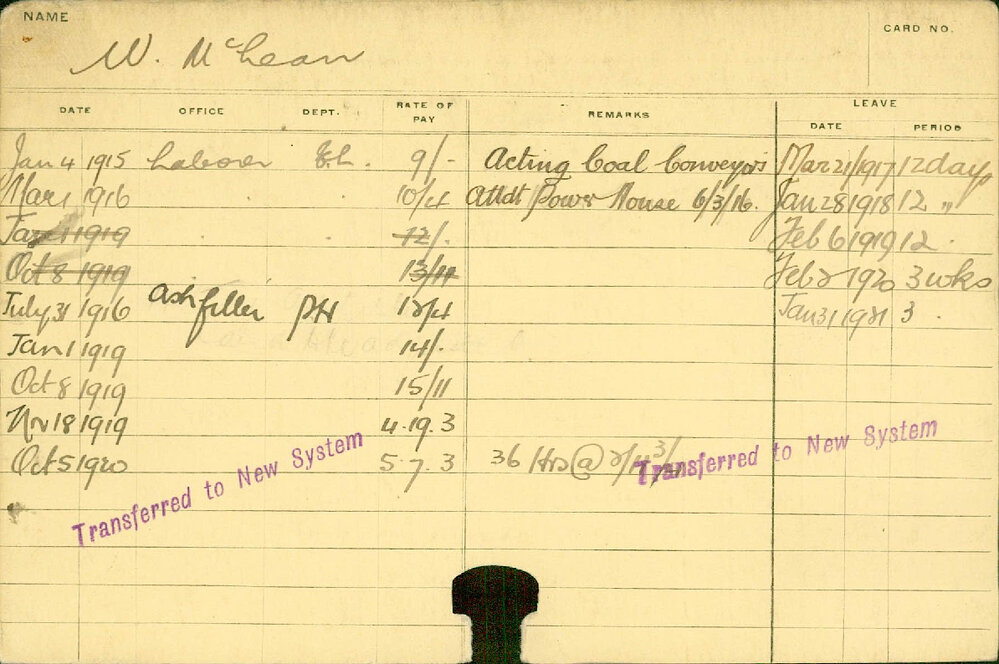 NAME
CARD NO.
W. McLean
DATE OFFICE DEPT. RATE OF PAY REMARKS LEAVE
DATE PERIOD
Jan 4 1915 Laborer El. 9/- Acting Coal Conveyors Mar 21/1917 12 days
Mar 1 1916 10/4 Attdt Power House 6/3/16. Jan 28 1918 12 "
Jan 1 1919 12/. Feb 6 1919 12 .
Oct 8 1919 13/11 Feb 2 1920 3 wks
July 31 1916 Ashfiller PH 12/4 Jan 31 1921 3 .
Jan 1 1919 14/.
Oct 8 1919 15/11
Nov 18 1919 4.19.3
Oct 5 1920 5.7.3 36 Hrs @
Transferred to New System
Transferred to New System